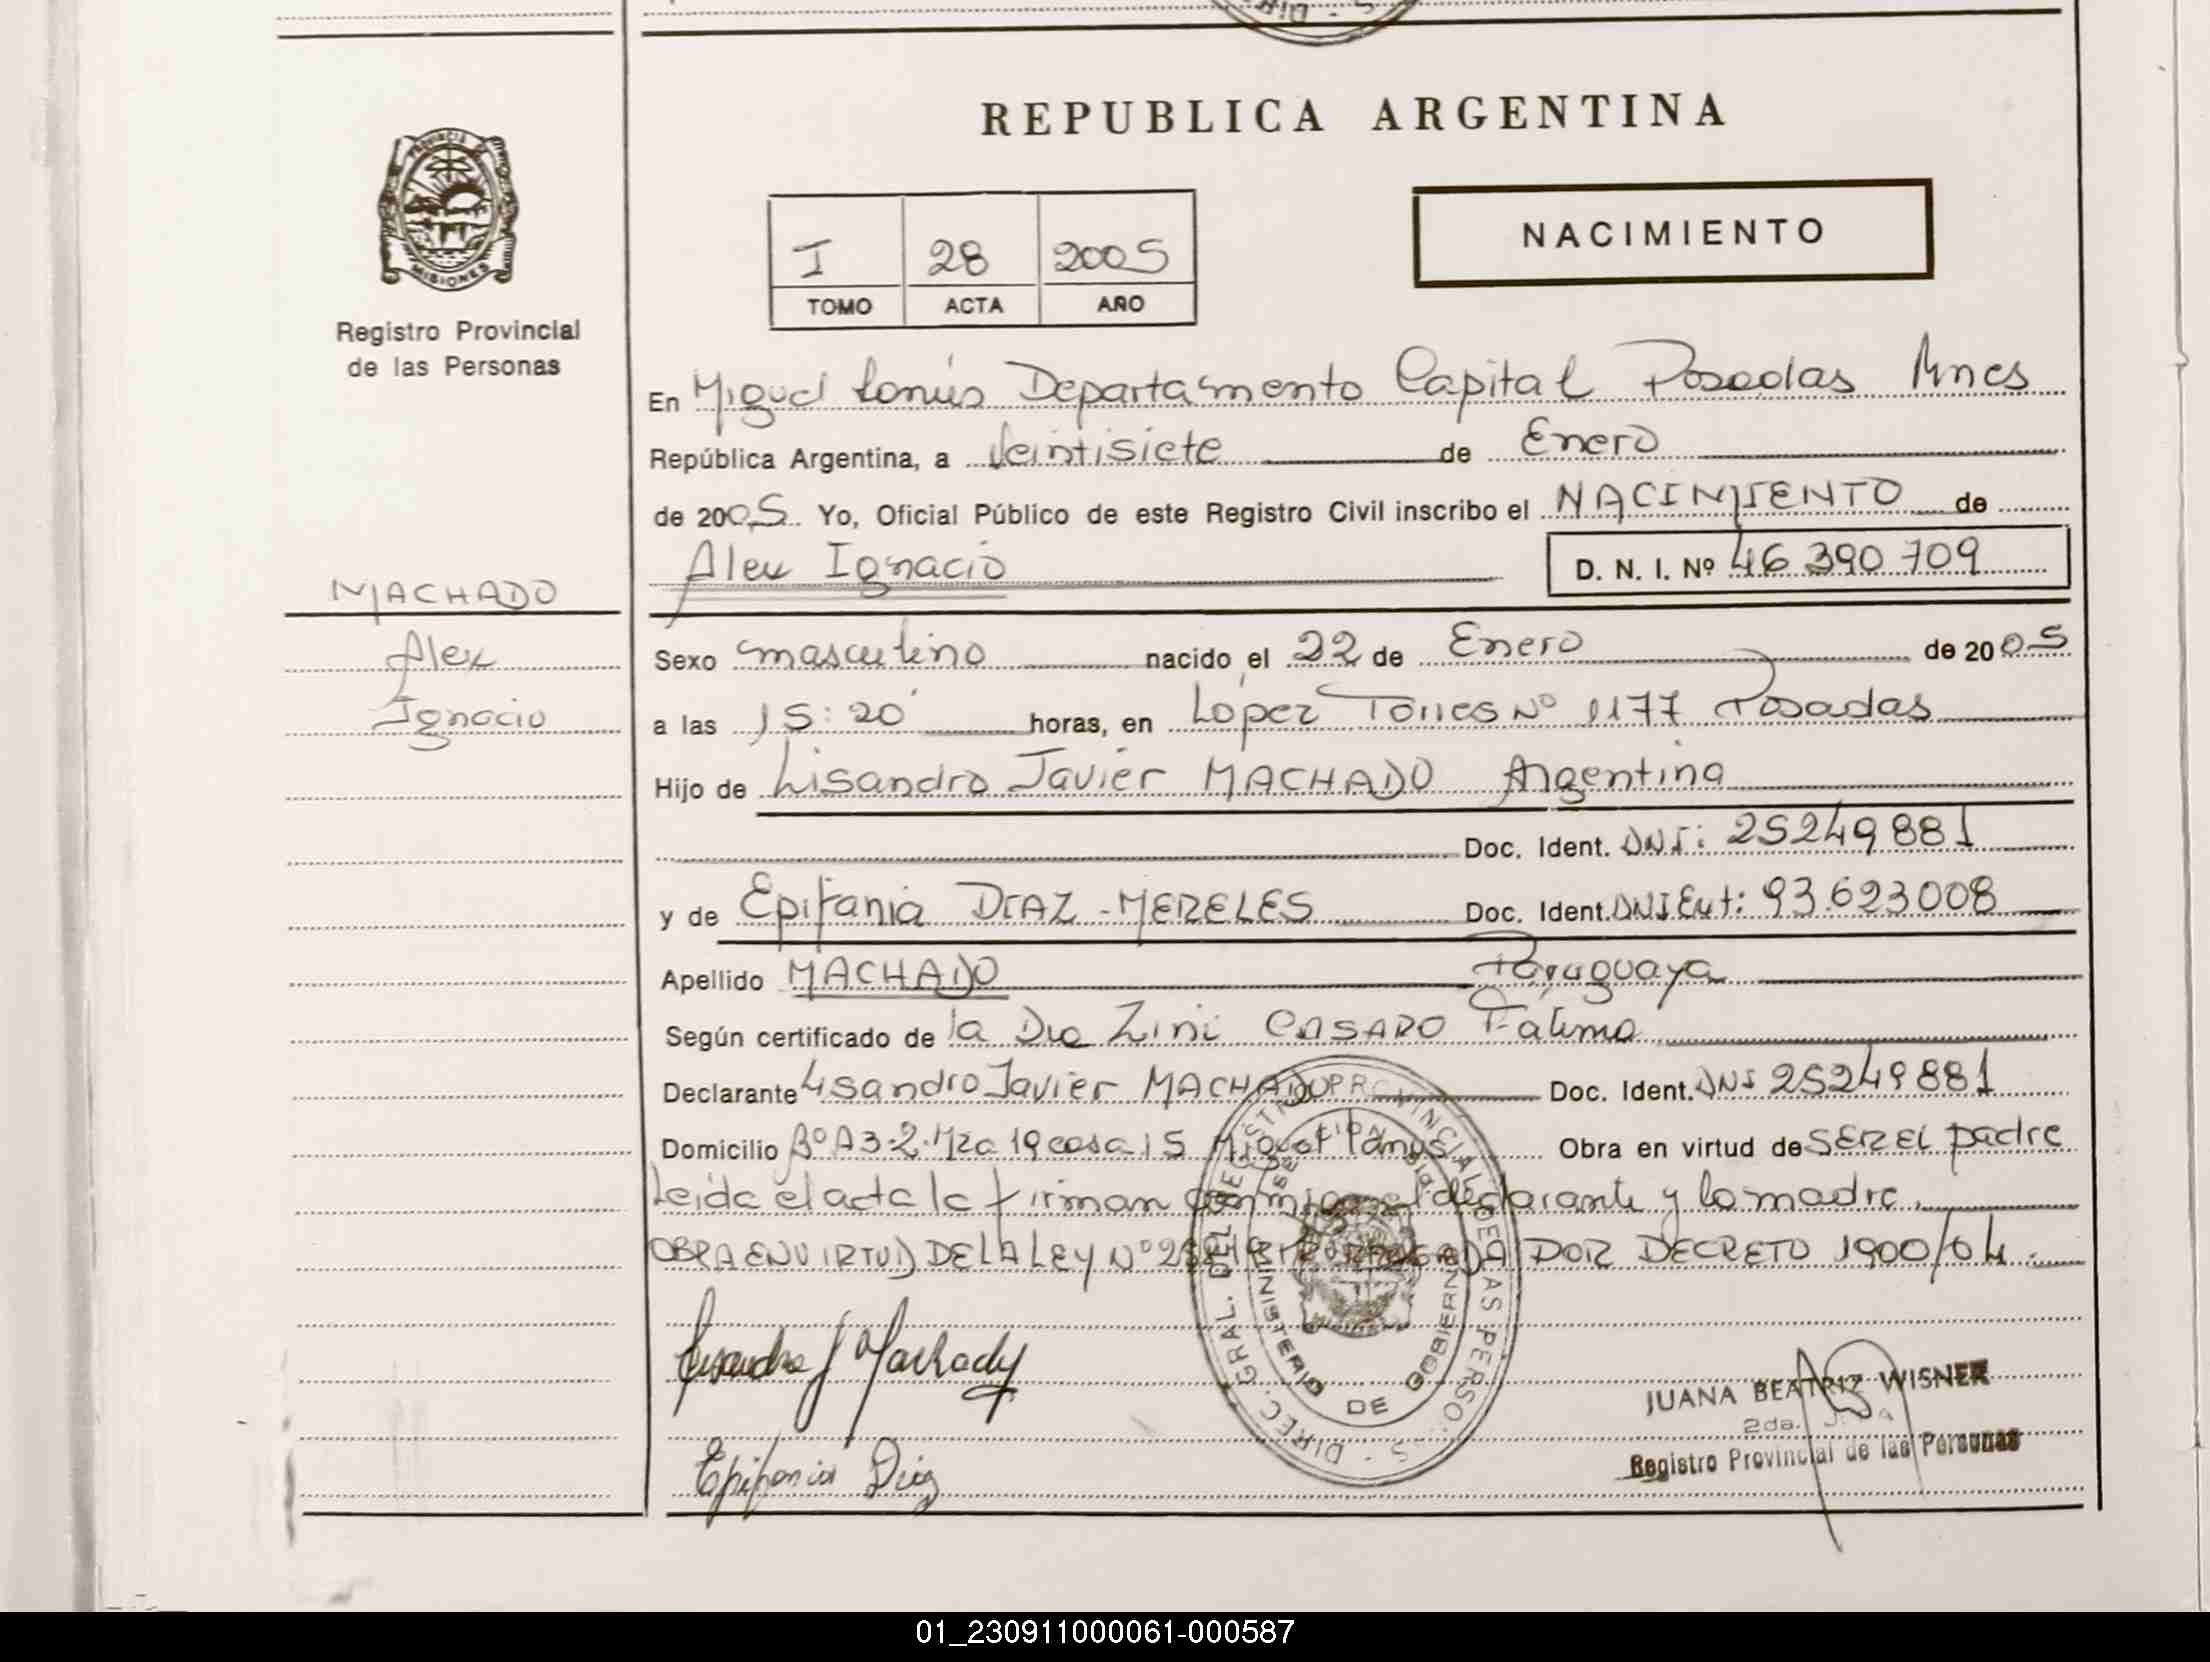 REPUBLICA ARGENTINA
PROVINCIA DE MISIONES
Registro Provincial
de las Personas
I 28 2005
TOMO ACTA AÑO
NACIMIENTO
En Miguel Lanús Departamento Capital Posadas Mnes
República Argentina, a Veintisiete de Enero
de 2005. Yo, Oficial Público de este Registro Civil inscribo el NACIMIENTO de
Alex Ignacio D. N. I. Nº 46.390.709
MACHADO
Alex
Ignacio
Sexo masculino nacido el 22 de Enero de 2005
a las 15:20 horas, en López Torres Nº 1177 Posadas
Hijo de Lisandro Javier MACHADO Argentina
Doc. Ident. DNI: 25249881
y de Epifania DIAZ - MERELES Doc. Ident. DNI Ext: 93.623008
Apellido MACHADO Paraguaya
Según certificado de la Dra Zini CASARO Fatima
Declarante Lisandro Javier MACHADO Doc. Ident. DNI 25249881
Domicilio Bº A3-2-Mza 19 casa 15 Miguel Lanus Obra en virtud de SER EL padre
Leida el acta la firman conmigo el declarante y la madre.
OBRA EN VIRTUD DE LA LEY Nº POR DECRETO 1900/04.
DIREC. GRAL. DEL REGISTRO PROVINCIAL DE LAS PERSONAS
MINISTERIO DE GOBIERNO
Lisandro J Machado
Epifania Diaz
JUANA BEATRIZ WISNER
2da.
Registro Provincial de las Personas
01_230911000061-000587